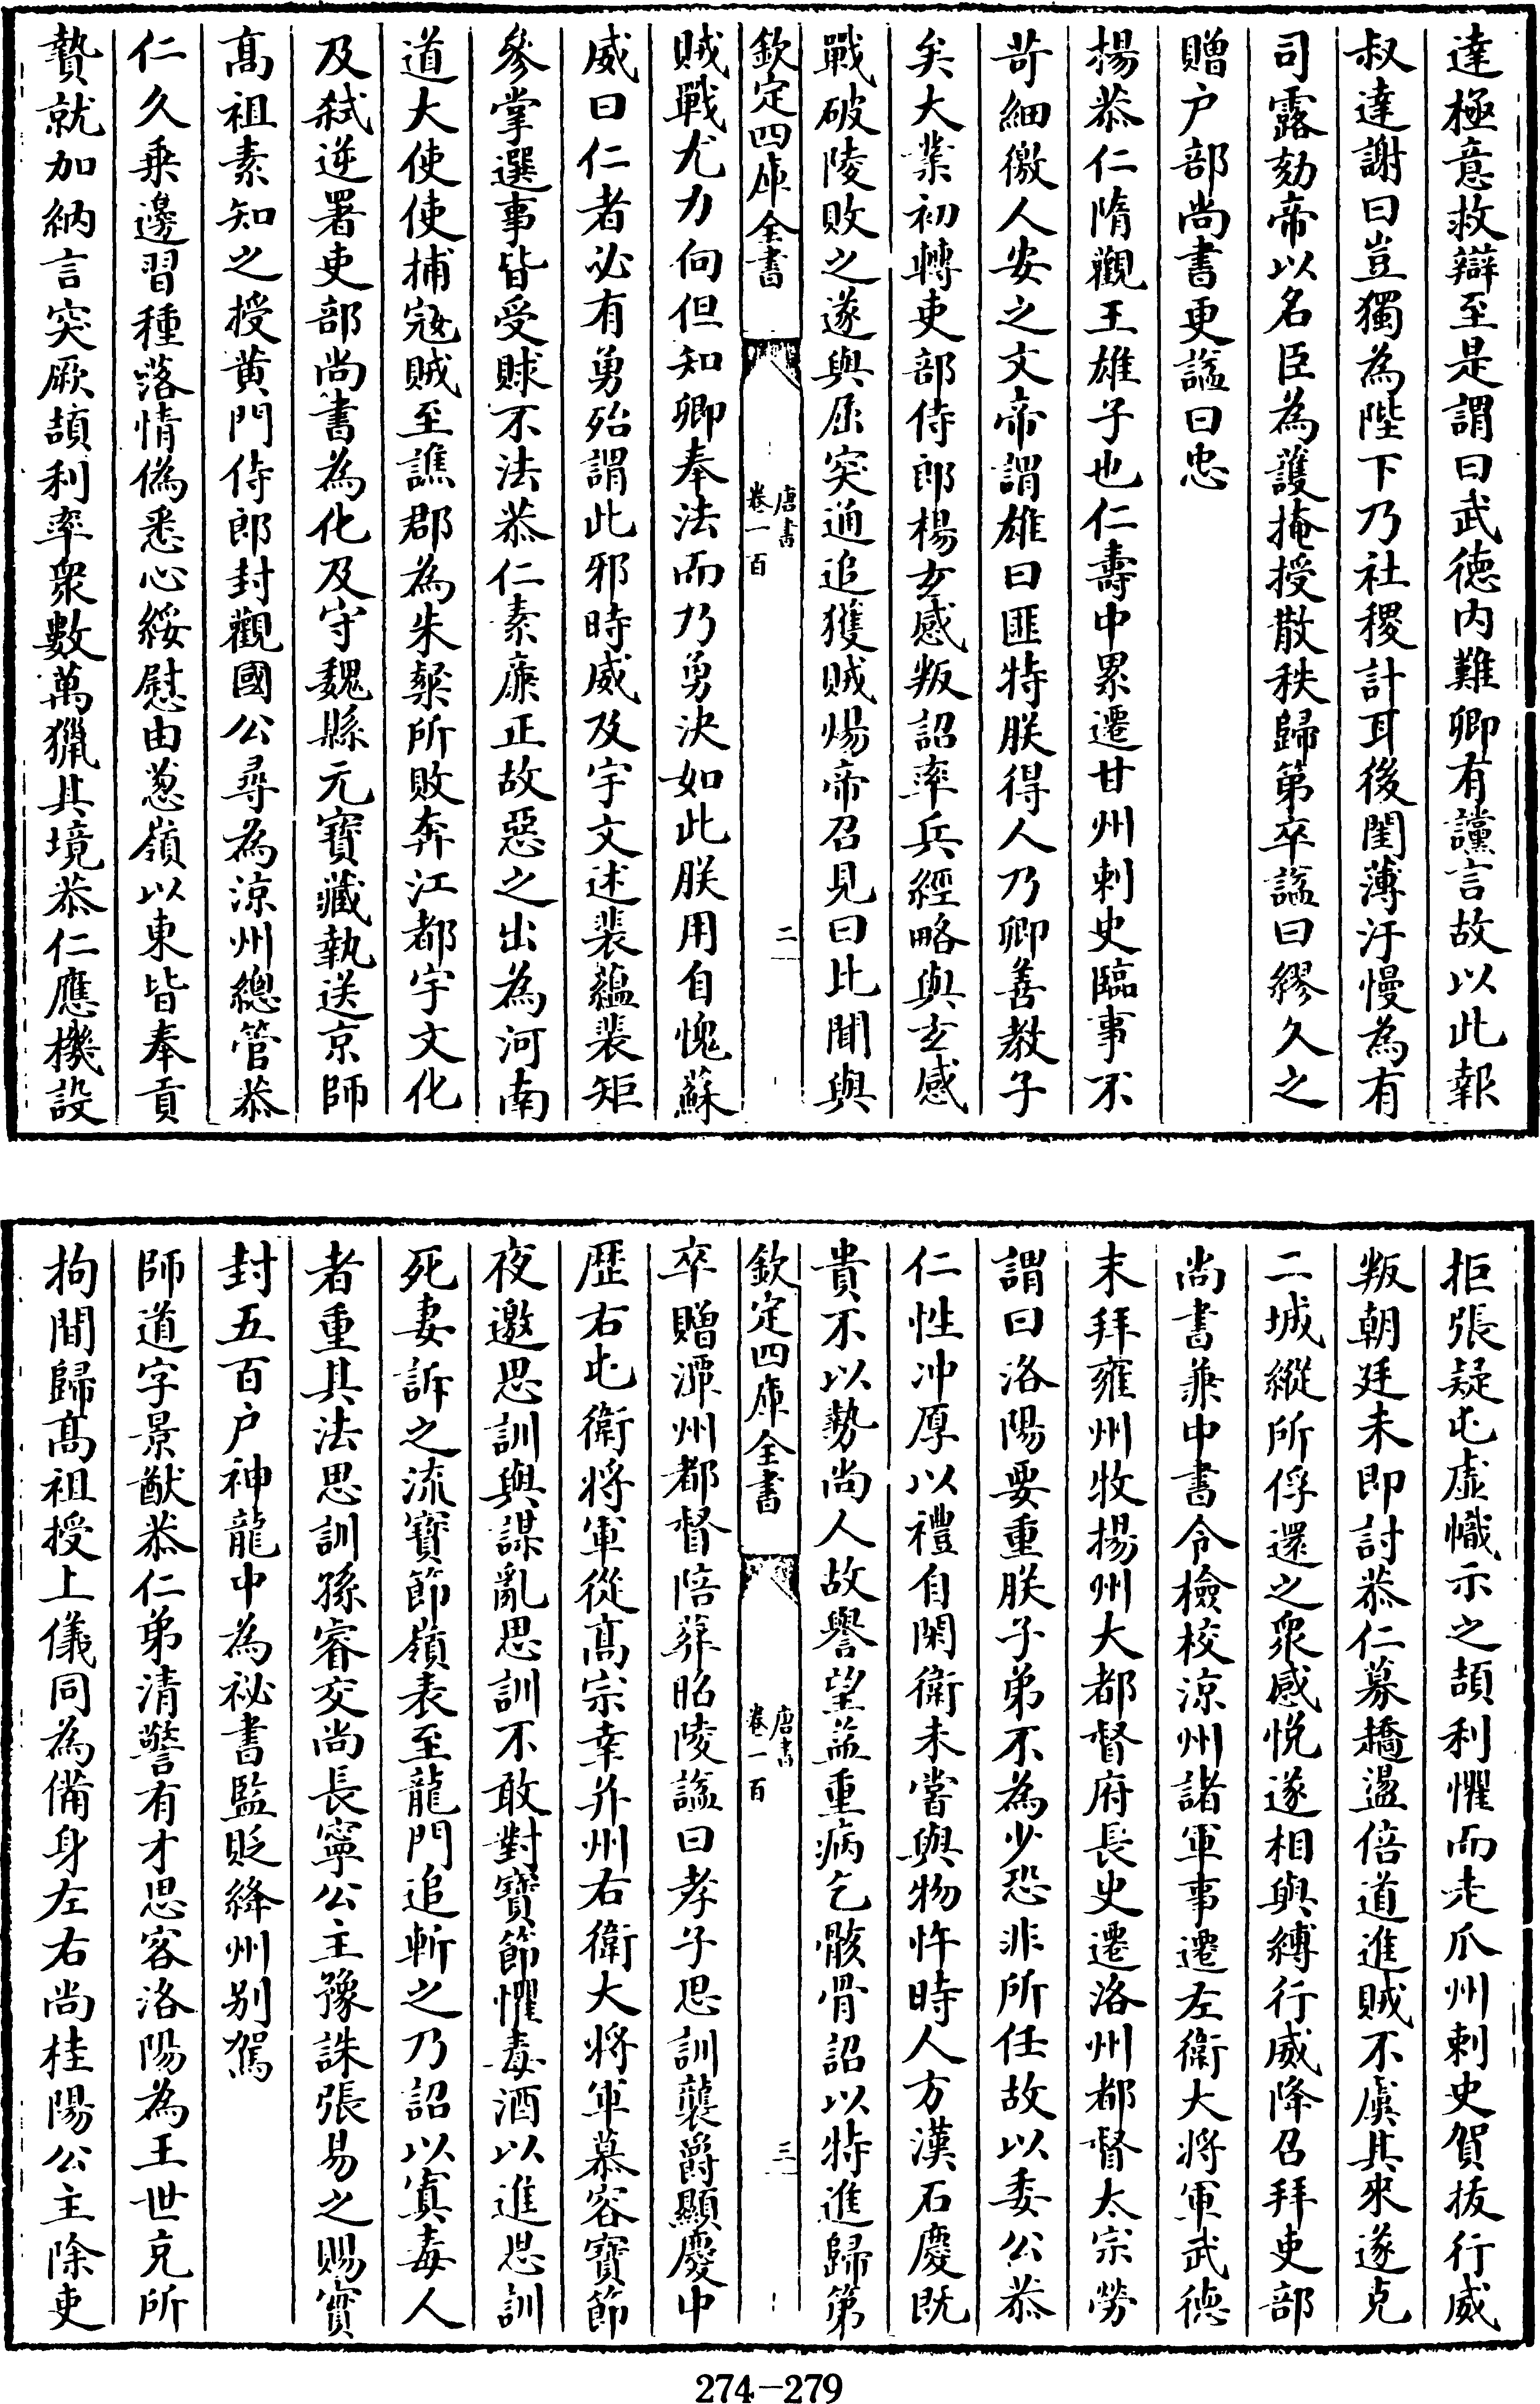 達極意救辯至是謂曰武徳内難卿有讜言故以此報
叔達謝曰豈獨為陛下乃社稷計耳後閨薄汙慢為有
司露劾帝以名臣為護掩授散秩歸第卒諡曰繆久之
贈户部尚書更諡曰忠
楊恭仁隋觀王雄子也仁壽中累遷甘州刺史臨事不
苛細徼人安之文帝謂雄曰匪特朕得人乃卿善教子
矣大業初轉吏部侍郎楊玄感叛詔率兵經略與玄感
戰破陵敗之遂與屈突通追獲賊煬帝召見曰比聞與
欽定四庫全書
唐書
卷一百
二
賊戰尤力向但知卿奉法而乃勇決如此朕用自愧蘇
威曰仁者必有勇殆謂此邪時威及宇文述裴藴裴矩
參掌選事皆受賕不法恭仁素廉正故惡之出為河南
道大使使捕寇賊至譙郡為朱粲所敗奔江都宇文化
及弑逆署吏部尚書為化及守魏縣元寶藏執送京師
髙祖素知之授黄門侍郎封觀國公尋為涼州總管恭
仁久乗邊習種落情偽悉心綏慰由葱嶺以東皆奉貢
贄就加納言突厥頡利率衆數萬獵其境恭仁應機設
拒張疑屯虚幟示之頡利懼而走瓜州刺史賀拔行威
叛朝廷未即討恭仁募趫盪倍道進賊不虞其來遂克
二城縱所俘還之衆感悦遂相與縛行威降召拜吏部
尚書兼中書令檢校涼州諸軍事遷左衛大將軍武徳
末拜雍州牧揚州大都督府長史遷洛州都督太宗勞
謂曰洛陽要重朕子弟不為少恐非所任故以委公恭
仁性冲厚以禮自閑衛未嘗與物忤時人方漢石慶既
貴不以勢尚人故譽望益重病乞骸骨詔以特進歸第
欽定四庫全書
唐書
卷一百
三
卒贈潭州都督陪葬昭陵諡曰孝子思訓襲爵顯慶中
歴右屯衛將軍從髙宗幸并州右衛大將軍慕容寶節
夜邀思訓與謀亂思訓不敢對寶節懼毒酒以進思訓
死妻訴之流寶節嶺表至龍門追斬之乃詔以寘毒人
者重其法思訓孫睿交尚長寧公主豫誅張易之賜實
封五百户神龍中為祕書監貶絳州别駕
師道字景猷恭仁弟清警有才思客洛陽為王世充所
拘間歸髙祖授上儀同為備身左右尚桂陽公主除吏
274-279